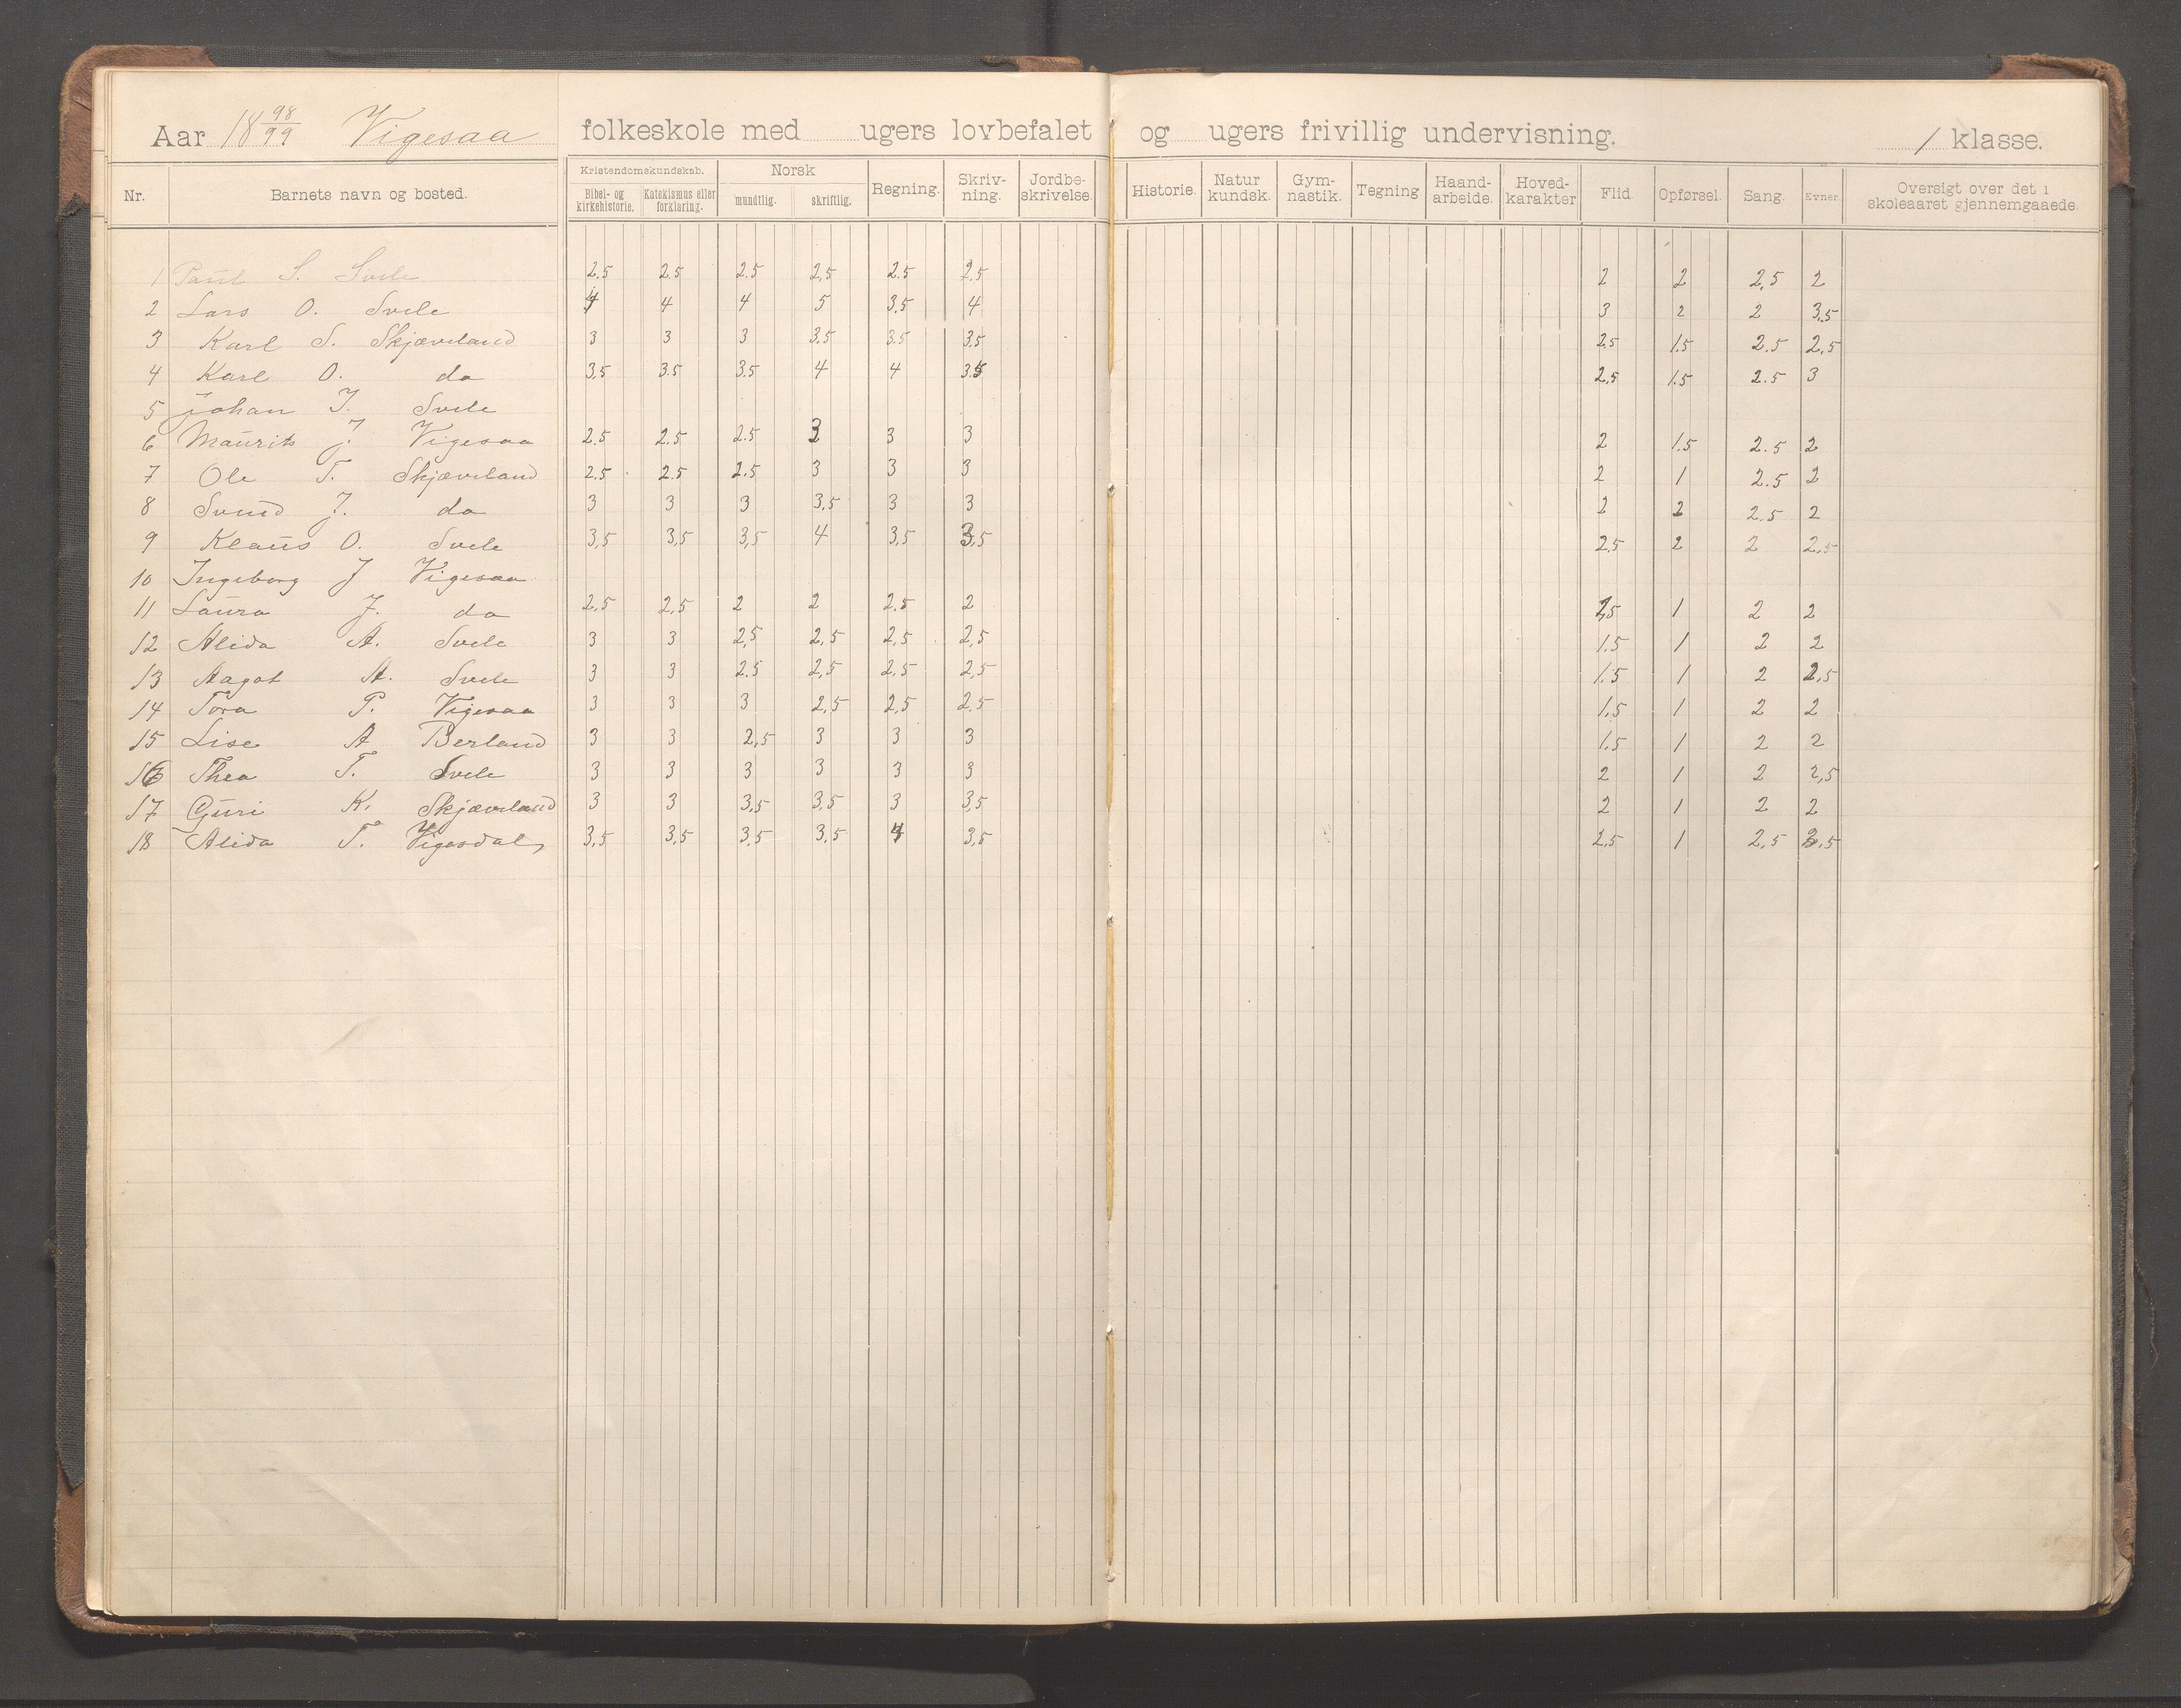 Aar 18 98/99 Vigesaa folkeskole med ugers lovbefalet og ugers frivillig undervisning. / klasse.
Nr. Barnets navn og bosted. Kristendomskundskab. Bibel- og kirkehistorie. Katekismus eller forklaring. Norsk mundtlig. skriftlig. Regning. Skriv-ning. Jordbe-skrivelse. Historie. Natur kundsk. Gym-nastik. Tegning Haand-arbeide. Hoved-karakter Flid. Opførsel. Sang. Evner Oversigt over det i skoleaaret gjennemgaaede.
1 Paul S. Svele 2.5 2.5 2.5 2,5 2.5 2.5 2 2 2,5 2
2 Lars O. Svele 4 4 4 5 3.5 4 3 2 2 3.5
3 Karl S. Skjæveland 3 3 3 3.5 3.5 3.5 2.5 1.5 2.5 2,5
4 Karl O. do 3,5 3.5 3.5 4 4 3.5 2,5 1.5 2.5 3
5 Johan I. Svele
6 Maurits J. Vigesaa 2.5 2.5 2.5 3 3 3 2 1.5 2.5 2
7 Ole T. Skjæveland 2.5 2.5 2.5 3 3 3 2 1 2.5 2
8 Svend J. do 3 3 3 3,5 3 3 2 2 2.5 2
9 Klaus O. Svele 3,5 3,5 3,5 4 3,5 3,5 2,5 2 2 2,5
10 Ingeborg J Vigesaa
11 Laura J. do 2,5 2,5 2 2 2,5 2 1,5 1 2 2
12 Alida A. Svele 3 3 2,5 2,5 2,5 2,5 1.5 1 2 2
13 Aagot A. Svele 3 3 2.5 2,5 2,5 2,5 1.5 1 2 2,5
14 Tora P. Vigesaa 3 3 3 2,5 2,5 2,5 1,5 1 2 2
15 Lise A Berland 3 3 2,5 3 3 3 1,5 1 2 2
16 Thea T. Svele 3 3 3 3 3 3 2 1 2 2,5
17 Guri K. Skjæveland 3 3 3,5 3,5 3 3,5 2 1 2 2
18 Alida T. Vigesdal 3,5 3,5 3,5 3,5 4 3,5 2,5 1 2,5 3,5